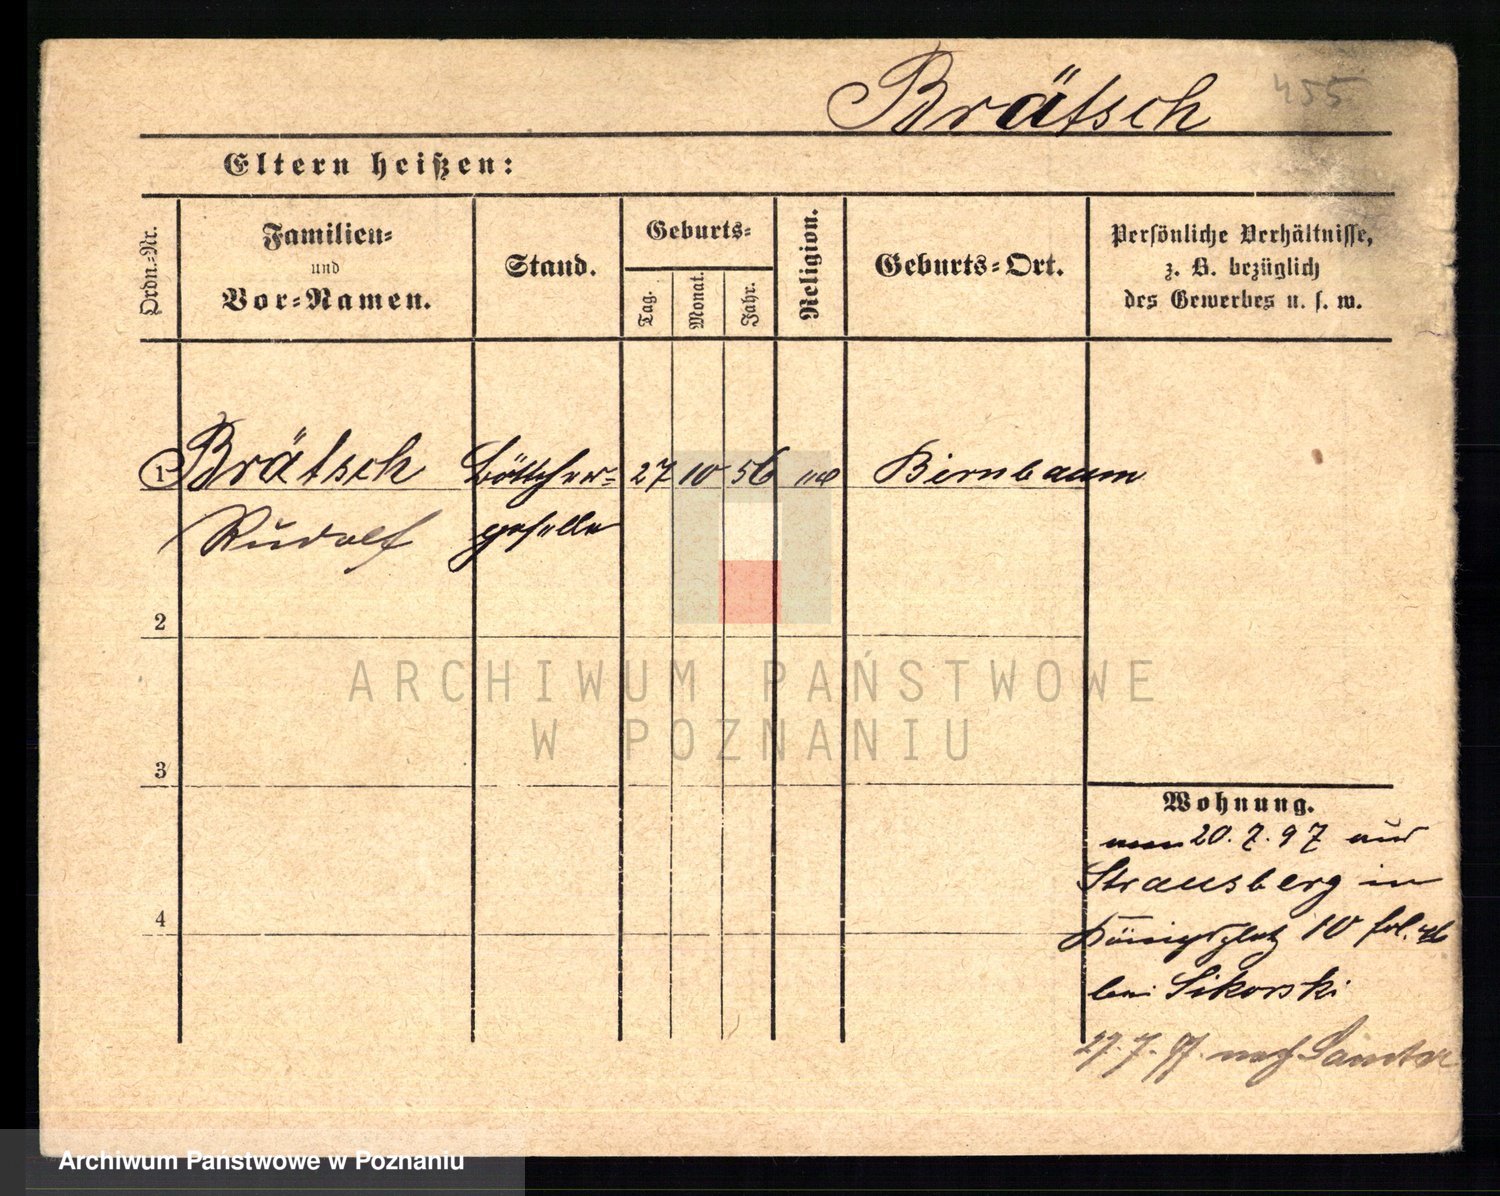 455
Brätsch
Eltern heißen:
Ordn.-Nr.
Familien- und Vor-Namen.
Stand.
Geburts-
Tag.
Monat.
Jahr.
Religion.
Geburts-Ort.
Persönliche Verhältnisse,
z. B. bezüglich
des Gewerbes u. s. w.
1 Brätsch Böttcher- 27 10 56 Birnbaum
Rudolf geselle
2
3
4
Wohnung.
20. 7. 97 aus
Strausberg in
Königsplatz 10
bei Sikorski
27. 7. 97. nach Samter
ARCHIWUM PAŃSTWOWE
W POZNANIU
Archiwum Państwowe w Poznaniu